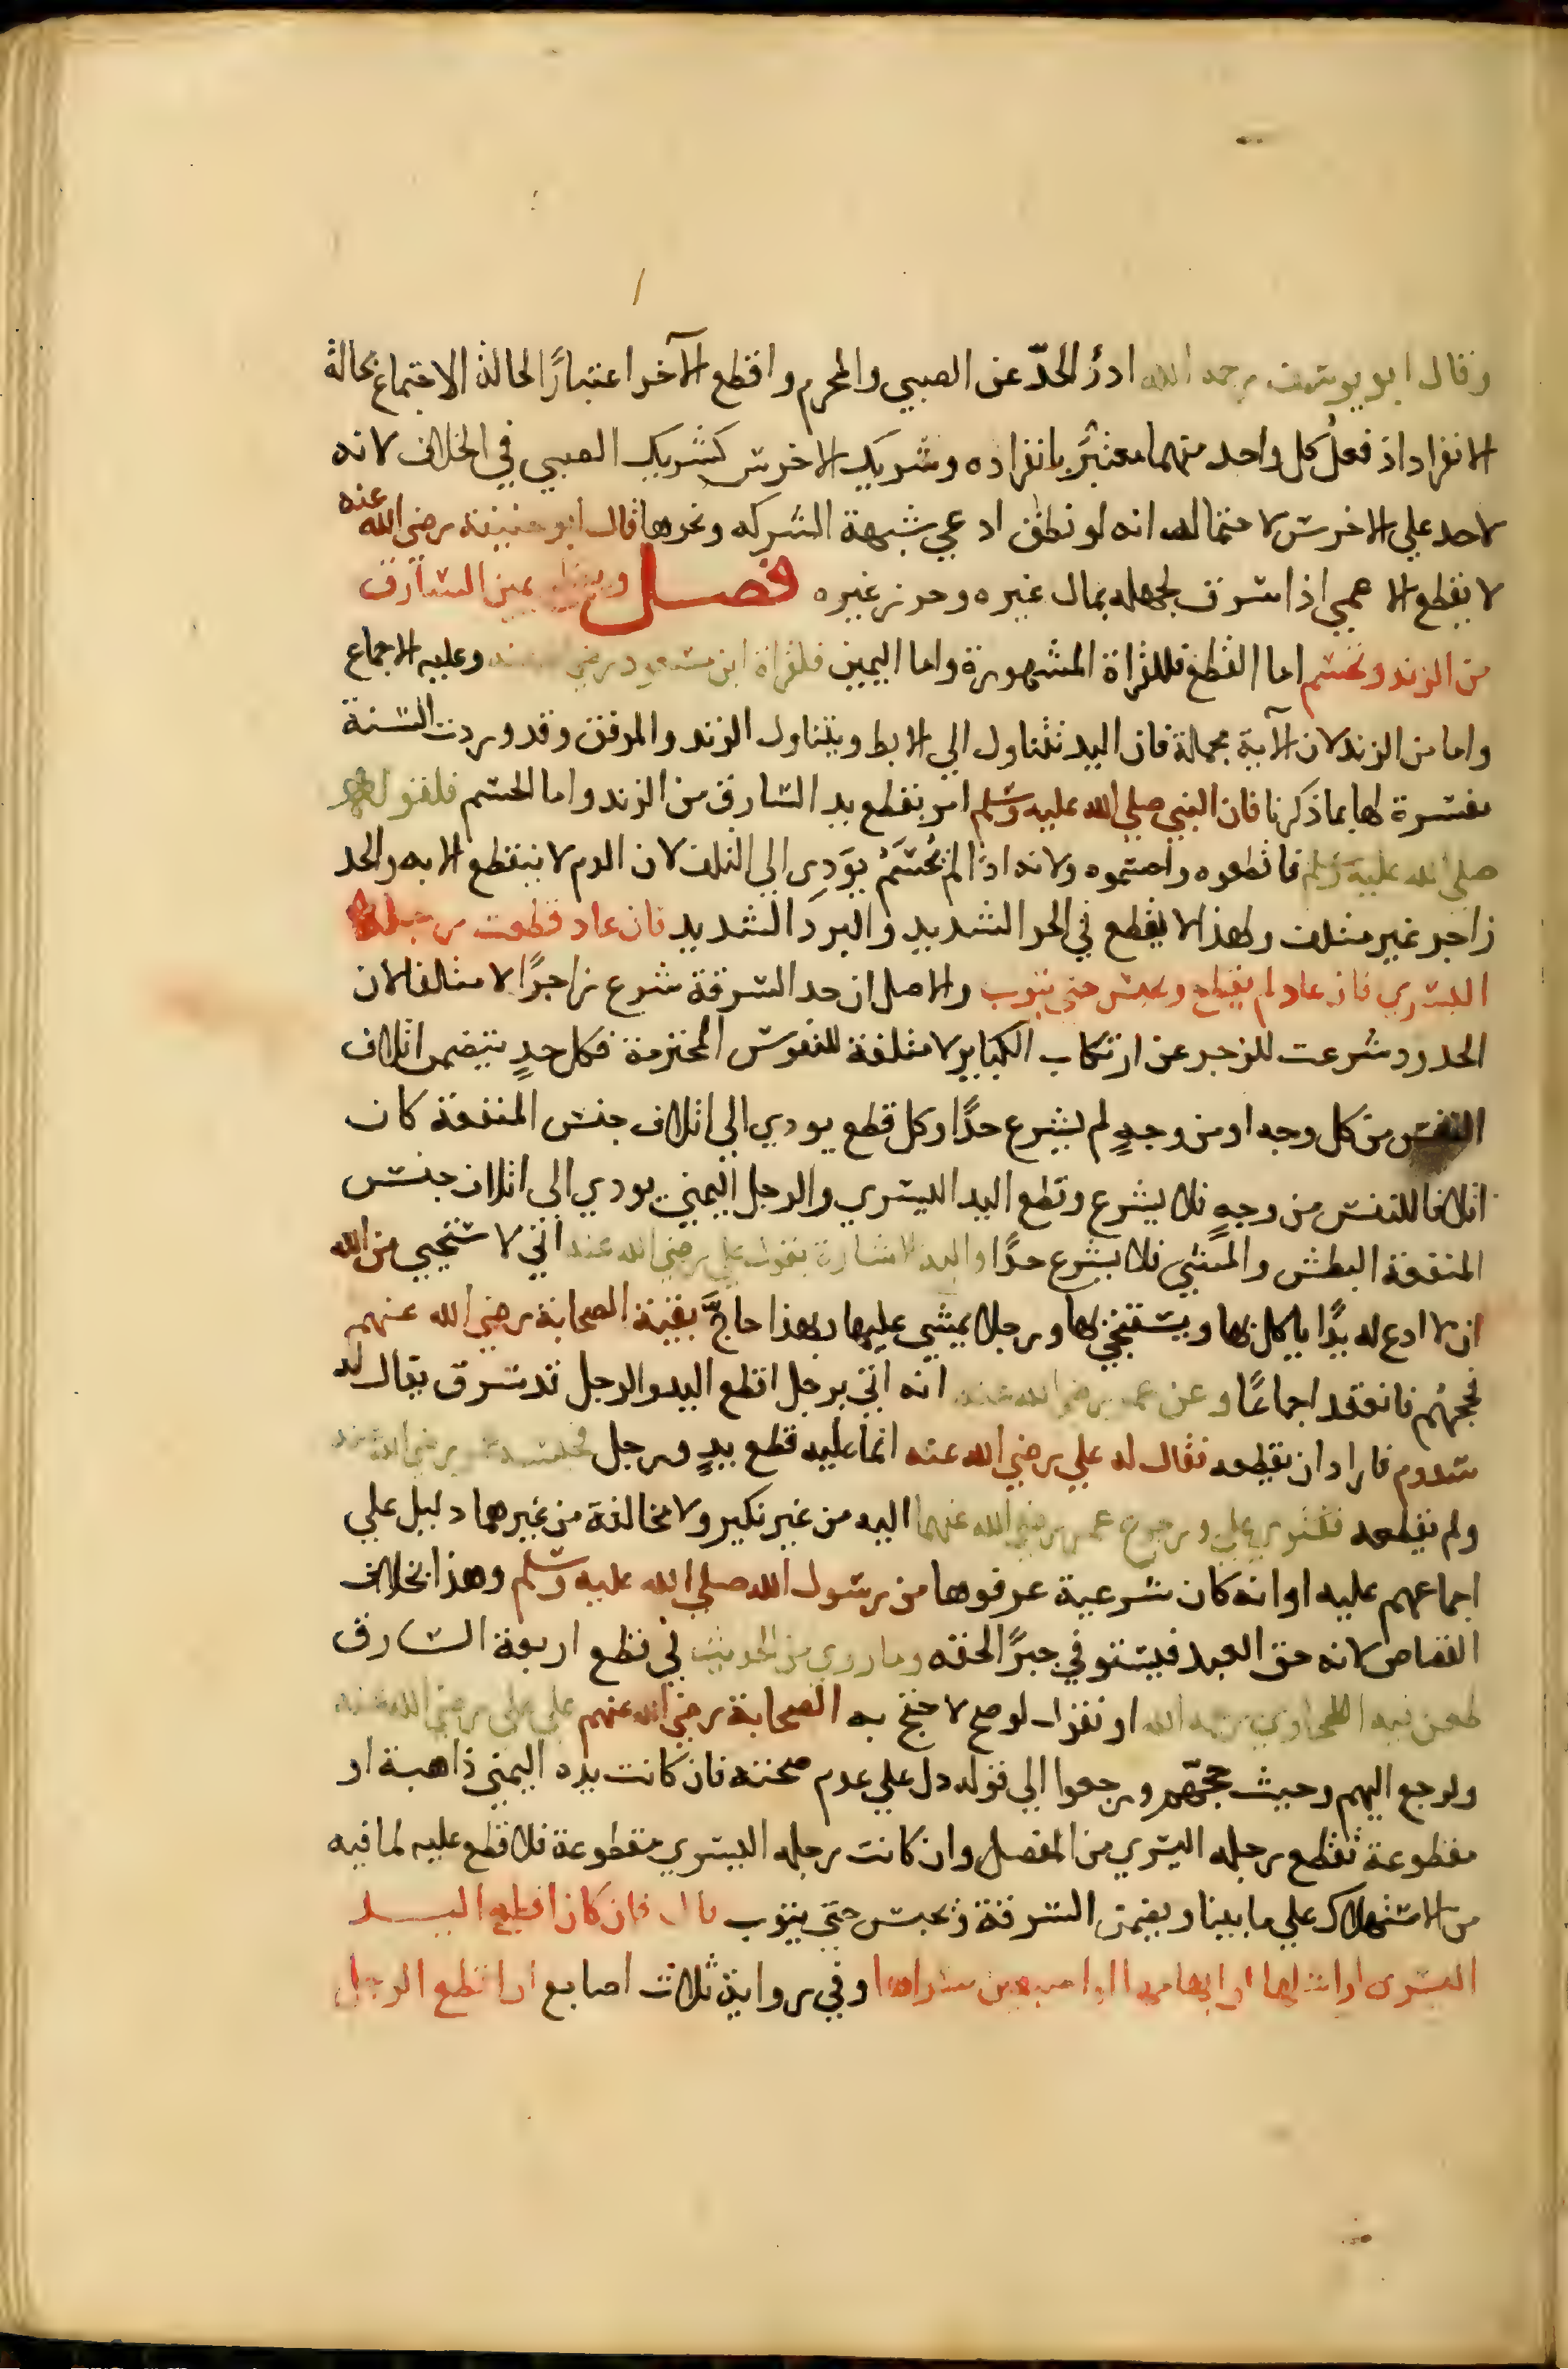 وقال ابو يوسف رحمه الله ادرأ الحدّ عن الصبي والمحرم واقطع الآخر اعتبارًا لحالة الاجتماع بحالة
الانفراد اذ فعلُ كل واحد منهما معتبَر بانفراده وشريك الاخرس كشريك الصبي في الخلاف لانه
لا حد علي الاخرس لاحتماله انه لو نطق ادعي شبهة الشركه ونحوها قال ابو حنيفة رضي الله عنه
لا يقطع الاعمي اذا سرق لجهله بمال غيره وحرز غيره فصل ويقطع يمين السارق
من الزند وتحسم اما القطع فللقراة المشهورة واما اليمين فلقراة ابن مسعود رضي الله عنه وعليه الاجماع
واما من الزند لان الآية مجملة فان اليد تتناول الي الابط ويتناول الزند والمرفق وقد وردت السنة
مفسرة لها بما ذكرنا فان النبي صلي الله عليه وسلم امر بقطع يد السارق من الزند واما الحسم فلقوله
صلي الله عليه وسلم فاقطعوه واحسموه ولانه اذا لم تُحسَمْ يوَدِي الي التلف لان الدم لا ينقطع الا به والحد
زاجر غير متلف ولهذا لا يقطع في الحر الشديد والبرد الشديد فان عاد قطعت رجله
اليسري فان عاد لم يقطع وحبس حتي يتوب والاصل ان حد السرقة شرع زاجرًا لا متلفا لان
الحدود شرعت للزجر عن ارتكاب الكباير لا متلفة للنفوس المحترمة فكل حدٍ يتضمن اتلاف
النفس من كل وجه او من وجهٍ لم يشرع حدًا وكل قطع يودي الي اتلاف جنس المنفعة كان
اتلافا للنفس من وجهٍ فلا يشرع وقطع اليد اليسري والرجل اليمني يودي الي اتلاف جنس
المنفعة البطش والمشي فلا يشرع حدًا واليه الاشارة بقول علي رضي الله عنه اني لاستحيي من الله
ان لا ادع له يدًا ياكل بها ويستنجي بها ورجلا يمشي عليها وبهذا حاجَّ بقية الصحابة رضي الله عنهم
فحجهُم فانعقد اجماعًا وعن عمر رضي الله عنه انه اتي برجل اقطع اليد والرجل قد سرق يقال له
سدوم فاراد ان يقطعه فقال له علي رضي الله عنه انما عليه قطع يدٍ ورجل فحبسه عمر رضي الله عنه
ولم يقطعه ففتوي علي ورجوع عمر رضي الله عنهما اليه من غير نكير ولا مخالفة من غيرهما دليل علي
اجماعهم عليه او انه كان شرعية عرفوها من رسول الله صلي الله عليه وسلم وهذا بخلاف
القصاص لانه حق العبد فيستوفي جبرًا لحقه وما روي من الحديث في قطع اربعة السارق
طعن فيه الطحاوي رحمه الله او نقول لو صح لاحتج به الصحابة رضي الله عنهم علي علي رضي الله عنه
ولرجع اليهم وحيث حجهّم ورجعوا الي قوله دل علي عدم صحته فان كانت يده اليمني ذاهبة او
مقطوعة تقطع رجله اليسري من المفصل وان كانت رجله اليسري مقطوعة فلا قطع عليه لما فيه
من الاستهلاك علي ما بينا ويضمن السرقة ويحبس حتي يتوب قال فان كان اقطع اليد
اليسري او اشلها او ابهامها او اصبعين سواها وفي رواية ثلاث اصابع او اقطع الرجل